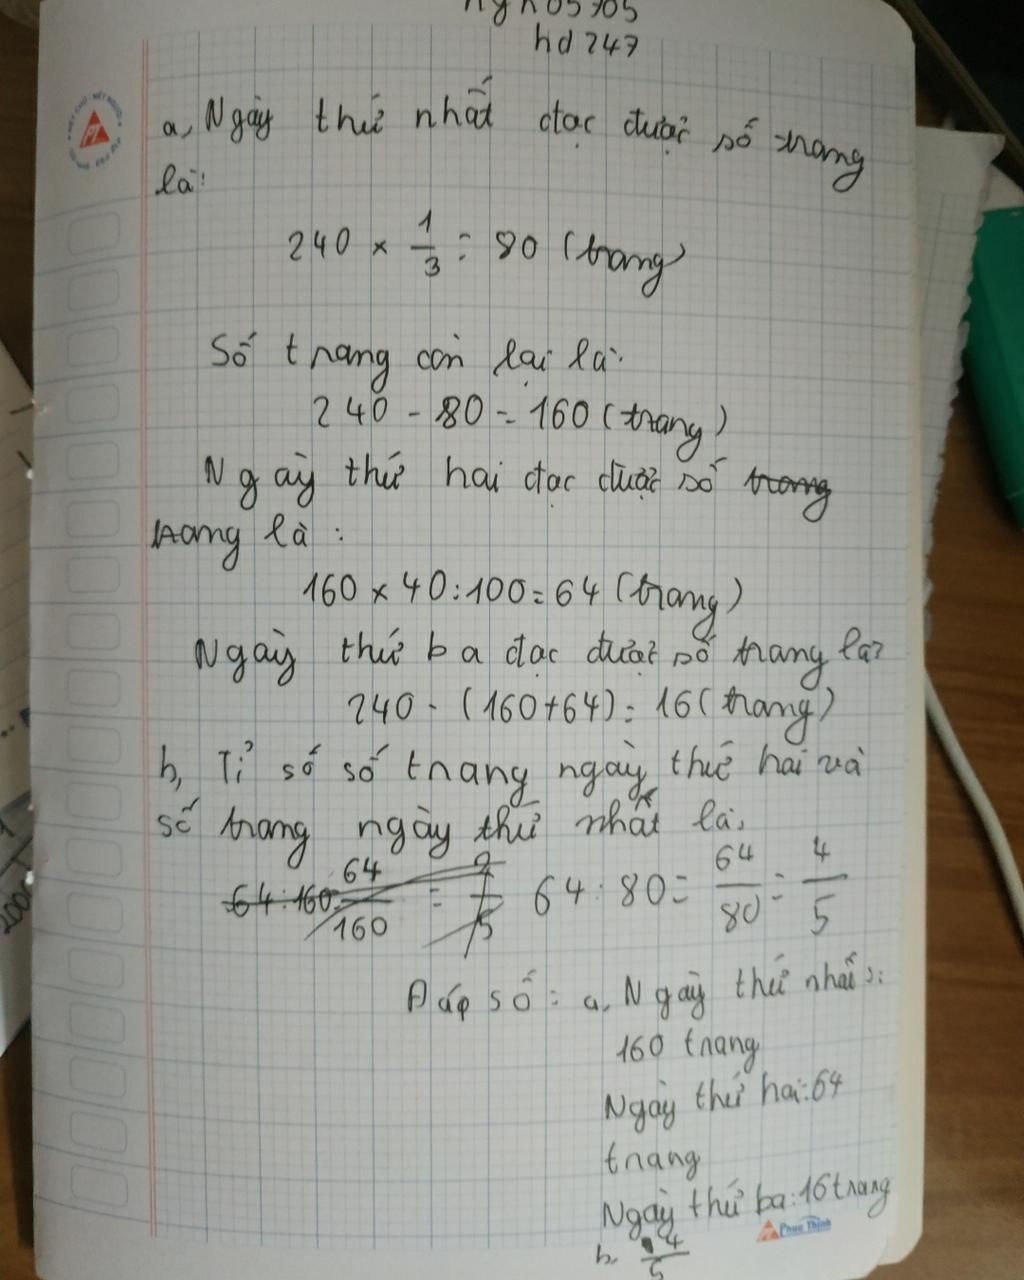 hd 247
a, Ngày thứ nhất đọc được số trang
là:
240 × 1/3 = 80 (trang)
Số trang còn lại là:
240 - 80 = 160 (trang)
Ngày thứ hai đọc được số trang
trang là:
160 × 40 : 100 = 64 (trang)
Ngày thứ ba đọc được số trang là:
240 - (160 + 64) = 16 (trang)
b, Tỉ số số trang ngày thứ hai và
số trang ngày thứ nhất là:
64 : 160 = 64/160 = 64 : 80 = 64/80 = 4/5
Đáp số: a, Ngày thứ nhất:
160 trang
Ngày thứ hai: 64
trang
Ngày thứ ba: 16 trang
Phúc Thịnh
b, 4/5